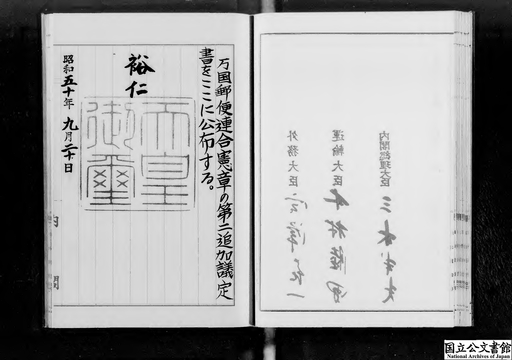 内閣総理大臣 三木武夫
運輸大臣 木村睦男
外務大臣 宮澤喜一
万国郵便連合憲章の第二追加議定
書をここに公布する。
裕仁
天皇
御璽
昭和五十年九月二十日
内閣
国立公文書館
National Archives of Japan